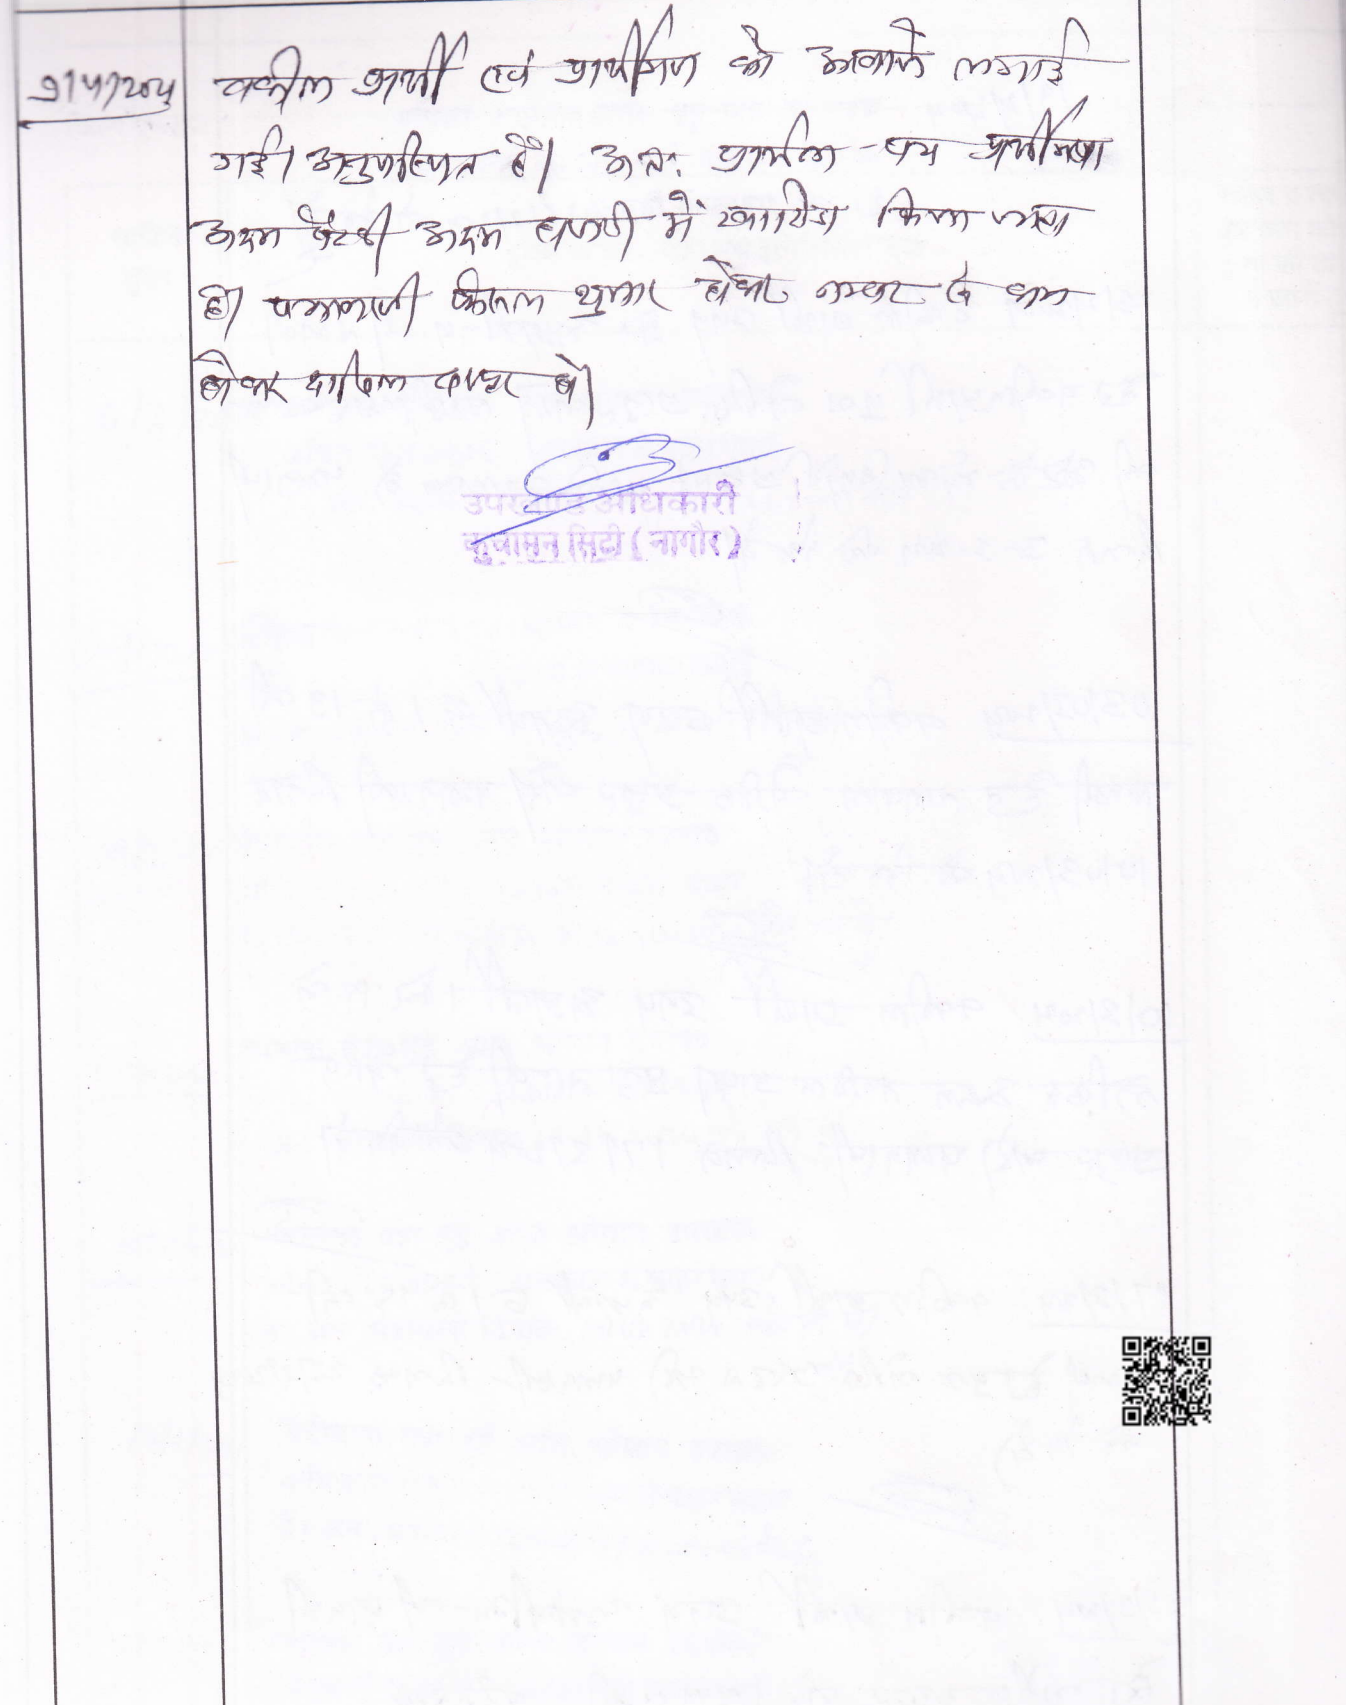 वकील प्रार्थी एवं प्रार्थीगण को आवाजे लगाई
गई। अनुपस्थित है। अतः प्रार्थना-पत्र प्रार्थीगण
अदम पैरवी अदम हाजरी में खारिज किया जाता
है। पत्रावली फैसल शुमार होकर नम्बर से कम
होकर दाखिल दफ्तर हो।
उपखण्ड अधिकारी
कुचामन सिटी (नागौर)